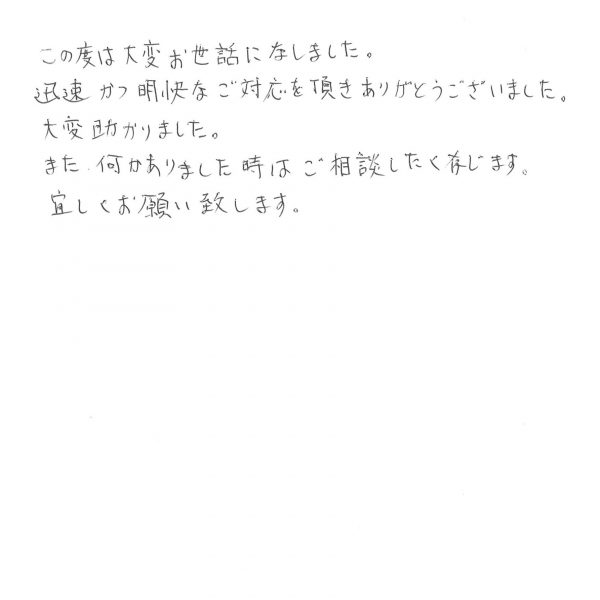 この度は大変お世話になしました。
迅速かつ明快なご対応を頂きありがとうございました。
大変助かりました。
また何かありました時はご相談したく存じます。
宜しくお願い致します。